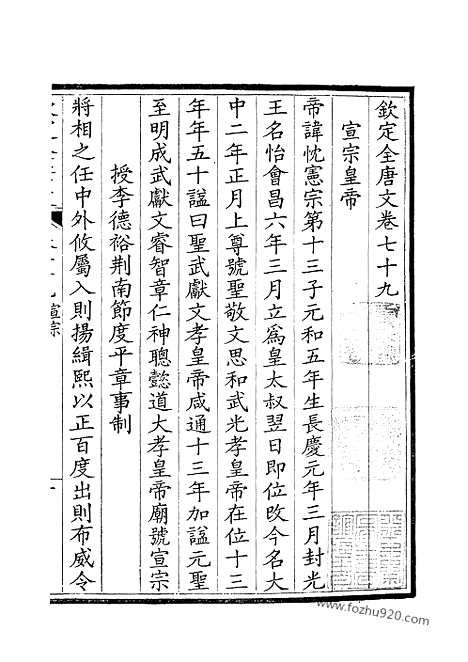 欽定全唐文卷七十九
宣宗皇帝
帝諱忱憲宗第十三子元和五年生長慶元年三月封光
王名怡會昌六年三月立爲皇太叔翌日即位改今名大
中二年正月上尊號聖敬文思和武光孝皇帝在位十三
年年五十諡曰聖武獻文孝皇帝咸通十三年加諡元聖
至明成武獻文睿智章仁神聰懿道大孝皇帝廟號宣宗
授李德裕荆南節度平章事制
將相之任中外攸屬入則揚緝熙以正百度出則布威令
宣宗
www.fozhu920.com